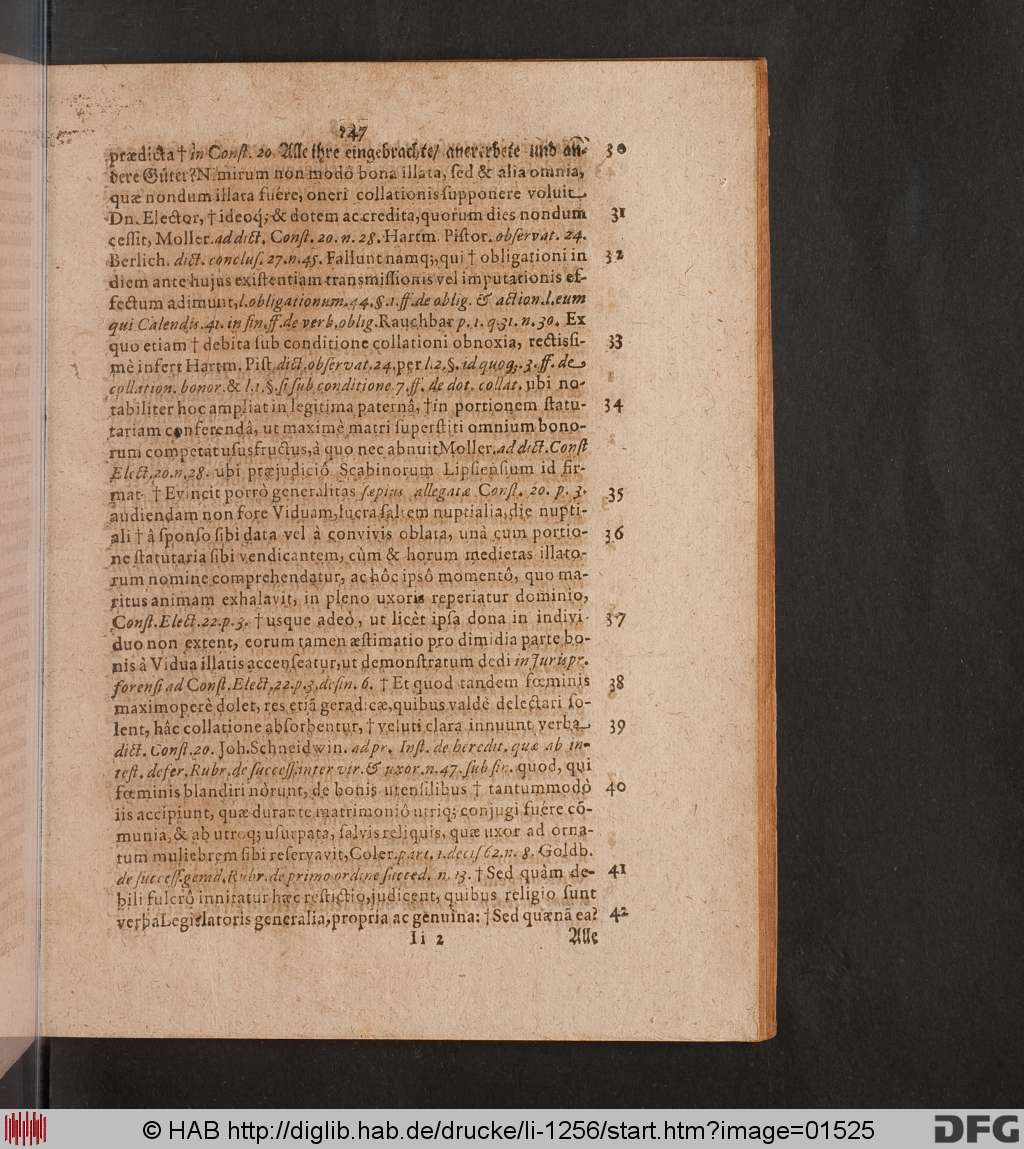 247
prædicta † in Const. 20. Alle ihre eingebrachte/ anererbete und an- 30
dere Güter? Nimirum non modò bona illata, sed & alia omnia,
quæ nondum illata fuêre, oneri collationis supponere voluit
Dn. Elector, † ideoq; & dotem ac credita, quorum dies nondum 31
cessit, Moller. ad dict. Const. 20. n. 28. Hartm. Pistor. observat. 24.
Berlich. dict. conclus. 27. n. 45. Fallunt namq;, qui † obligationi in 32
diem ante hujus existentiam transmissionis vel imputationis ef-
fectum adimunt, l. obligationum. 44. §. 1. ff. de oblig. & action. l. eum
qui Calendis. 41. in fin. ff. de verb. oblig. Rauchbar p. 1. q. 31. n. 30. Ex
quo etiam † debita sub conditione collationi obnoxia, rectissi- 33
mè infert Hartm. Pist. dict. observat. 24. per l. 2. §. id quoq;. 3. ff. de
collation. bonor. & l. 1. §. si sub conditione. 7. ff. de dot. collat. ubi no-
tabiliter hoc ampliat in legitima paternâ, † in portionem statu- 34
tariam conferendâ, ut maximè matri superstiti omnium bono-
rum competat ususfructus, à quo nec abnuit Moller. ad dict. Const
Elect. 20. n. 28. ubi præjudiciô Scabinorum Lipsiensium id fir-
mat. † Evincit porrò generalitas sæpius allegatæ Const. 20. p. 3. 35
audiendam non fore Viduam, lucra saltem nuptialia, die nupti-
ali † â sponso sibi data vel à convivis oblata, unà cum portio- 36
ne statutaria sibi vendicantem, cùm & horum medietas illato-
rum nomine comprehendatur, ac hôc ipsô momentô, quo ma-
ritus animam exhalavit, in pleno uxoris reperiatur dominio,
Const. Elect. 22. p. 3. † usque adeò, ut licèt ipsa dona in indivi- 37
duo non extent, eorum tamen æstimatio pro dimidia parte bo-
nis à Vidua illatis accenseatur, ut demonstratum dedi in Jurispr.
forensi ad Const. Elect. 22. p. 3. defin. 6. † Et quod tandem fœminis 38
maximoperè dolet, res etiã geradicæ, quibus valdè delectari so-
lent, hâc collatione absorbentur, † veluti clara innuunt verba 39
dict. Const. 20. Joh. Schneidwin. ad pr. Inst. de heredit. quæ ab in-
test. defer. Rubr. de success. inter vir. & uxor. n. 47. sub fin. quod, qui
fœminis blandiri nôrunt, de bonis utensilibus † tantummodò 40
iis accipiunt, quæ durante matrimoniô utriq; conjugi fuêre cõ-
munia, & ab utroq; usurpata, salvis reliquis, quæ uxor ad orna-
tum muliebrem sibi reservavit, Coler. part. 1. decis 62. n. 8. Goldb.
de success. gerad. Rubr. de primo ordine succed. n. 13. † Sed quàm de- 41
bili fulcrô innitatur hæc restictio, judicent, quibus religio sunt
verba Legislatoris generalia, propria ac genuina: † Sed quænã ea? 42
Ii 2 Alle
© HAB http://diglib.hab.de/drucke/li-1256/start.htm?image=01525
DFG